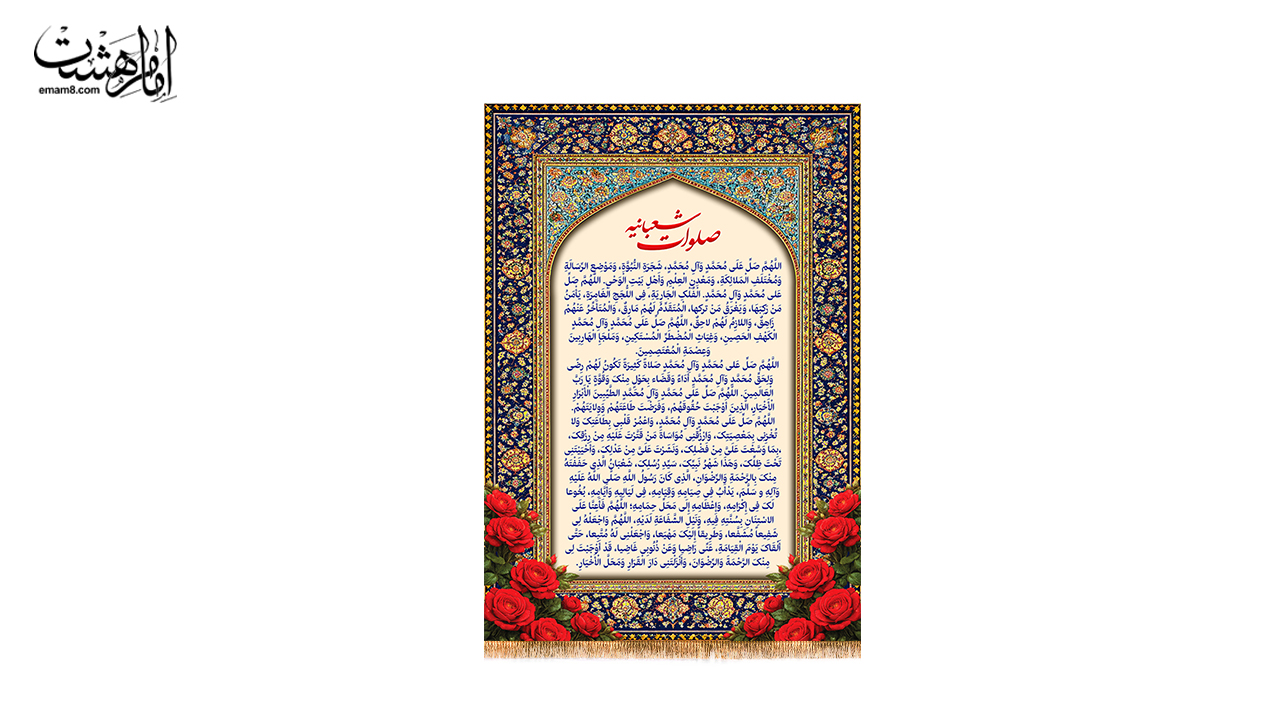 امام هشت
emam8.com
صلوات شعبانیه
اللَّهُمَّ صَلِّ عَلَى مُحَمَّدٍ وَآلِ مُحَمَّدٍ، شَجَرَةِ النُّبُوَّةِ، وَمَوْضِعِ الرِّسَالَةِ
وَمُخْتَلَفِ الْمَلائِكَةِ، وَمَعْدِنِ الْعِلْمِ وَأَهْلِ بَيْتِ الْوَحْيِ. اللَّهُمَّ صَلِّ
عَلى مُحَمَّدٍ وَآلِ مُحَمَّدٍ. الْفُلْكِ الْجَارِيَةِ، فِى اللُّجَجِ الْغَامِرَةِ، يَأْمَنُ
مَنْ رَكِبَهَا، وَيَغْرَقُ مَنْ تركها، الْمُتَقَدِّمُ لَهُمْ مَارِقٌ، وَالْمُتَأَخِّرُ عَنْهُمْ
زَاهِقٌ، وَاللازِمُ لَهُمْ لاحِقٌ. اللَّهُمَّ صَلِّ عَلَى مُحَمَّدٍ وَآلِ مُحَمَّدٍ
الْكَهْفِ الْحَصِينِ، وَغِيَاثِ الْمُضْطَرِّ الْمُسْتَكِينِ، وَمَلْجَإِ الْهَارِبِينَ
وَعِصْمَةِ الْمُعْتَصِمِينَ.
اللَّهُمَّ صَلِّ عَلى مُحَمَّدٍ وَآلِ مُحَمَّدٍ صَلاةً كَثِيرَةً تَكُونُ لَهُمْ رِضًى
وَلِحَقِّ مُحَمَّدٍ وَآلِ مُحَمَّدٍ أَدَاءً وَقَضَاء بِحَوْلٍ مِنْكَ وَقُوَّةٍ يَا رَبَّ
الْعَالَمِينَ. اللَّهُمَّ صَلِّ عَلَى مُحَمَّدٍ وَآلِ مُحَمَّدٍ الطَّيِّبِينَ الْأَبْرَارِ
الْأَخْيَارِ، الَّذِينَ أَوْجَبْتَ حُقُوقَهُمْ، وَفَرَضْتَ طَاعَتَهُمْ وَوِلايَتَهُمْ.
اللَّهُمَّ صَلِّ عَلَى مُحَمَّدٍ وَآلِ مُحَمَّدٍ، وَاعْمُرْ قَلْبِى بِطَاعَتِكَ وَلا
تُخْزِنِى بِمَعْصِيَتِكَ، وَارْزُقْنِى مُوَاسَاةَ مَنْ قَتَّرْتَ عَلَيْهِ مِنْ رِزْقِكَ،
بِمَا وَسَّعْتَ عَلَىَّ مِنْ فَضْلِكَ، وَنَشَرْتَ عَلَىَّ مِنْ عَدْلِكَ، وَأَحْيَيْتَنِى
تَحْتَ ظِلِّكَ، وَهَذَا شَهْرُ نَبِيِّكَ، سَيِّدِ رُسُلِكَ، شَعْبَانُ الَّذِى حَفَفْتَهُ
مِنْكَ بِالرَّحْمَةِ وَالرِّضْوَانِ، الَّذِى كَانَ رَسُولُ اللَّهِ صَلَّى اللَّهُ عَلَيْهِ
وَآلِهِ وَ سَلَّمَ، يَدْأَبُ فِى صِيَامِهِ وَقِيَامِهِ، فِى لَيَالِيهِ وَأَيَّامِهِ، بُخُوعا
لَكَ فِى إِكْرَامِهِ، وَإِعْظَامِهِ إِلَى مَحَلِّ حِمَامِهِ؛ اللَّهُمَّ فَأَعِنَّا عَلَى
الاسْتِنَانِ بِسُنَّتِهِ فِيهِ، وَنَيْلِ الشَّفَاعَةِ لَدَيْهِ، اللَّهُمَّ وَاجْعَلْهُ لِى
شَفِيعاً مُشَفَّعا، وَطَرِيقاً إِلَيْكَ مَهْيَعا، وَاجْعَلْنِى لَهُ مُتَّبِعا، حَتَّى
أَلْقَاكَ يَوْمَ الْقِيَامَةِ، عَنِّى رَاضِيا وَعَنْ ذُنُوبِى غَاضِيا، قَدْ أَوْجَبْتَ لِى
مِنْكَ الرَّحْمَةَ وَالرِّضْوَانَ، وَأَنْزَلْتَنِى دَارَ الْقَرَارِ وَمَحَلَّ الْأَخْيَارِ.